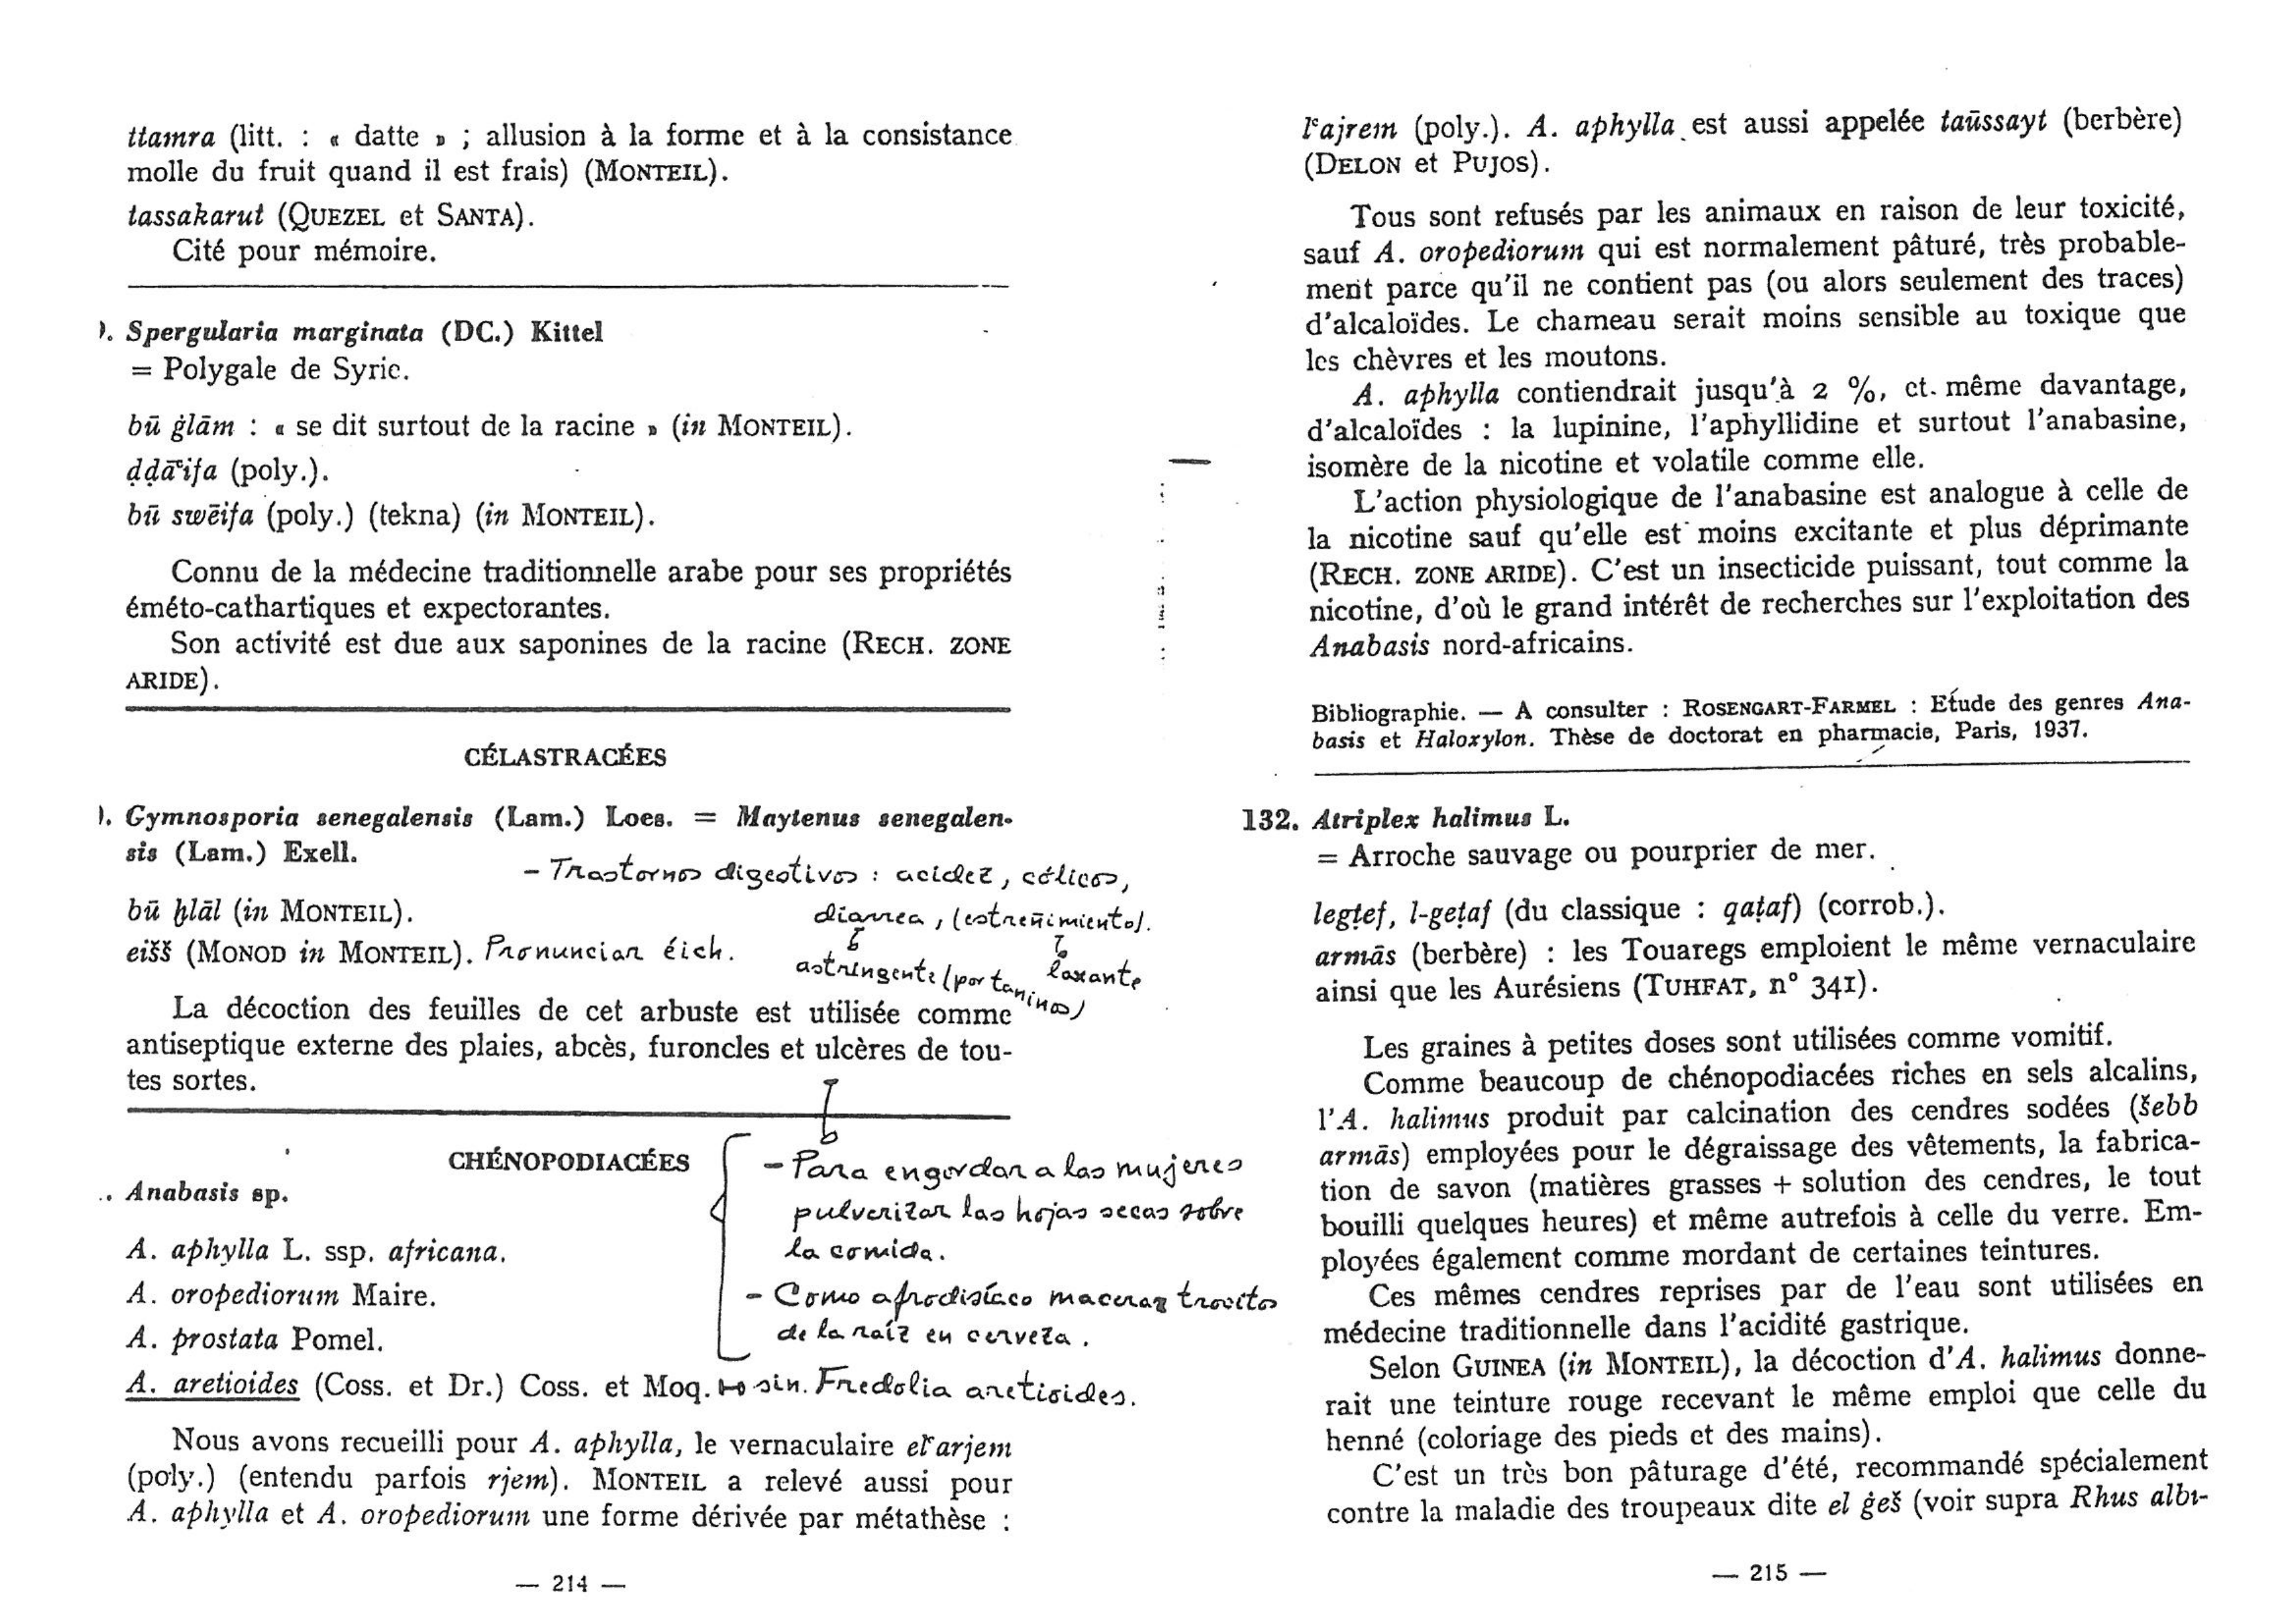 ttamra (litt. : « datte » ; allusion à la forme et à la consistance
molle du fruit quand il est frais) (MONTEIL).
tassakarut (QUEZEL et SANTA).
Cité pour mémoire.
). Spergularia marginata (DC.) Kittel
= Polygale de Syrie.
bū ġlām : « se dit surtout de la racine » (in MONTEIL).
ḍḍāʿifa (poly.).
bū swēifa (poly.) (tekna) (in MONTEIL).
Connu de la médecine traditionnelle arabe pour ses propriétés
éméto-cathartiques et expectorantes.
Son activité est due aux saponines de la racine (RECH. ZONE
ARIDE).
CÉLASTRACÉES
). Gymnosporia senegalensis (Lam.) Loes. = Maytenus senegalen-
sis (Lam.) Exell.
- Trastornos digestivos : acidez, cólicos,
diarrea, (estreñimiento).
astringente (por taninos) laxante
bū ḫlāl (in MONTEIL).
eišš (MONOD in MONTEIL). Pronunciar éich.
La décoction des feuilles de cet arbuste est utilisée comme
antiseptique externe des plaies, abcès, furoncles et ulcères de tou-
tes sortes.
- Para engordar a las mujeres
pulverizar las hojas secas sobre
la comida.
- Como afrodisíaco macerar trocitos
de la raíz en cerveza.
CHÉNOPODIACÉES
.. Anabasis sp.
A. aphylla L. ssp. africana.
A. oropediorum Maire.
A. prostata Pomel.
A. aretioides (Coss. et Dr.) Coss. et Moq. sin. Fredolia aretioides.
Nous avons recueilli pour A. aphylla, le vernaculaire elʿarjem
(poly.) (entendu parfois rjem). MONTEIL a relevé aussi pour
A. aphylla et A. oropediorum une forme dérivée par métathèse :
— 214 —
lʿajrem (poly.). A. aphylla est aussi appelée taūssayt (berbère)
(DELON et PUJOS).
Tous sont refusés par les animaux en raison de leur toxicité,
sauf A. oropediorum qui est normalement pâturé, très probable-
ment parce qu'il ne contient pas (ou alors seulement des traces)
d'alcaloïdes. Le chameau serait moins sensible au toxique que
les chèvres et les moutons.
A. aphylla contiendrait jusqu'à 2 %, et même davantage,
d'alcaloïdes : la lupinine, l'aphyllidine et surtout l'anabasine,
isomère de la nicotine et volatile comme elle.
L'action physiologique de l'anabasine est analogue à celle de
la nicotine sauf qu'elle est moins excitante et plus déprimante
(RECH. ZONE ARIDE). C'est un insecticide puissant, tout comme la
nicotine, d'où le grand intérêt de recherches sur l'exploitation des
Anabasis nord-africains.
Bibliographie. — A consulter : ROSENGART-FARMEL : Etude des genres Ana-
basis et Haloxylon. Thèse de doctorat en pharmacie, Paris, 1937.
132. Atriplex halimus L.
= Arroche sauvage ou pourprier de mer.
legṭef, l-geṭaf (du classique : qaṭaf) (corrob.).
armās (berbère) : les Touaregs emploient le même vernaculaire
ainsi que les Aurésiens (TUHFAT, n° 341).
Les graines à petites doses sont utilisées comme vomitif.
Comme beaucoup de chénopodiacées riches en sels alcalins,
l'A. halimus produit par calcination des cendres sodées (šebb
armās) employées pour le dégraissage des vêtements, la fabrica-
tion de savon (matières grasses + solution des cendres, le tout
bouilli quelques heures) et même autrefois à celle du verre. Em-
ployées également comme mordant de certaines teintures.
Ces mêmes cendres reprises par de l'eau sont utilisées en
médecine traditionnelle dans l'acidité gastrique.
Selon GUINEA (in MONTEIL), la décoction d'A. halimus donne-
rait une teinture rouge recevant le même emploi que celle du
henné (coloriage des pieds et des mains).
C'est un très bon pâturage d'été, recommandé spécialement
contre la maladie des troupeaux dite el ġeš (voir supra Rhus albi-
— 215 —